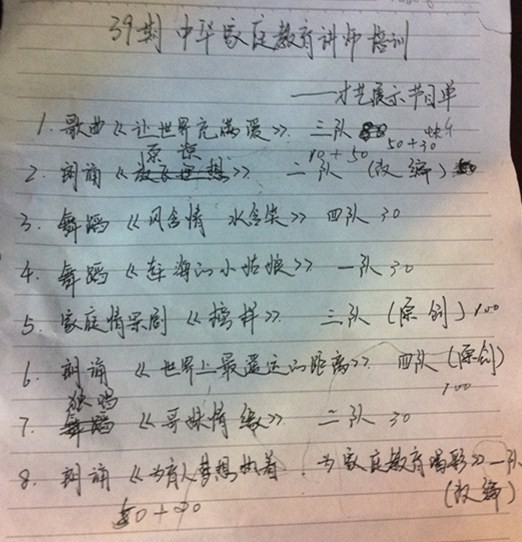 39期 中华家庭教育讲师培训
——才艺展示节目单
1. 歌曲《让世界充满爱》. 三队 50+30
原谅 10+50
2. 朗诵《》 二队 (改编)
3. 舞蹈《风含情 水含笑》 四队 30
4. 舞蹈《赶海的小姑娘》 一队 30
5. 家庭情景剧《榜样》. 三队 (原创) 100
6. 朗诵《世界上最遥远的距离》. 四队 (原创)
100
独唱
7. 舞蹈《哥妹情缘》. 二队 30
8. 朗诵《为育人梦想执着 . 为家庭教育喝彩》一队
(改编)
50+20